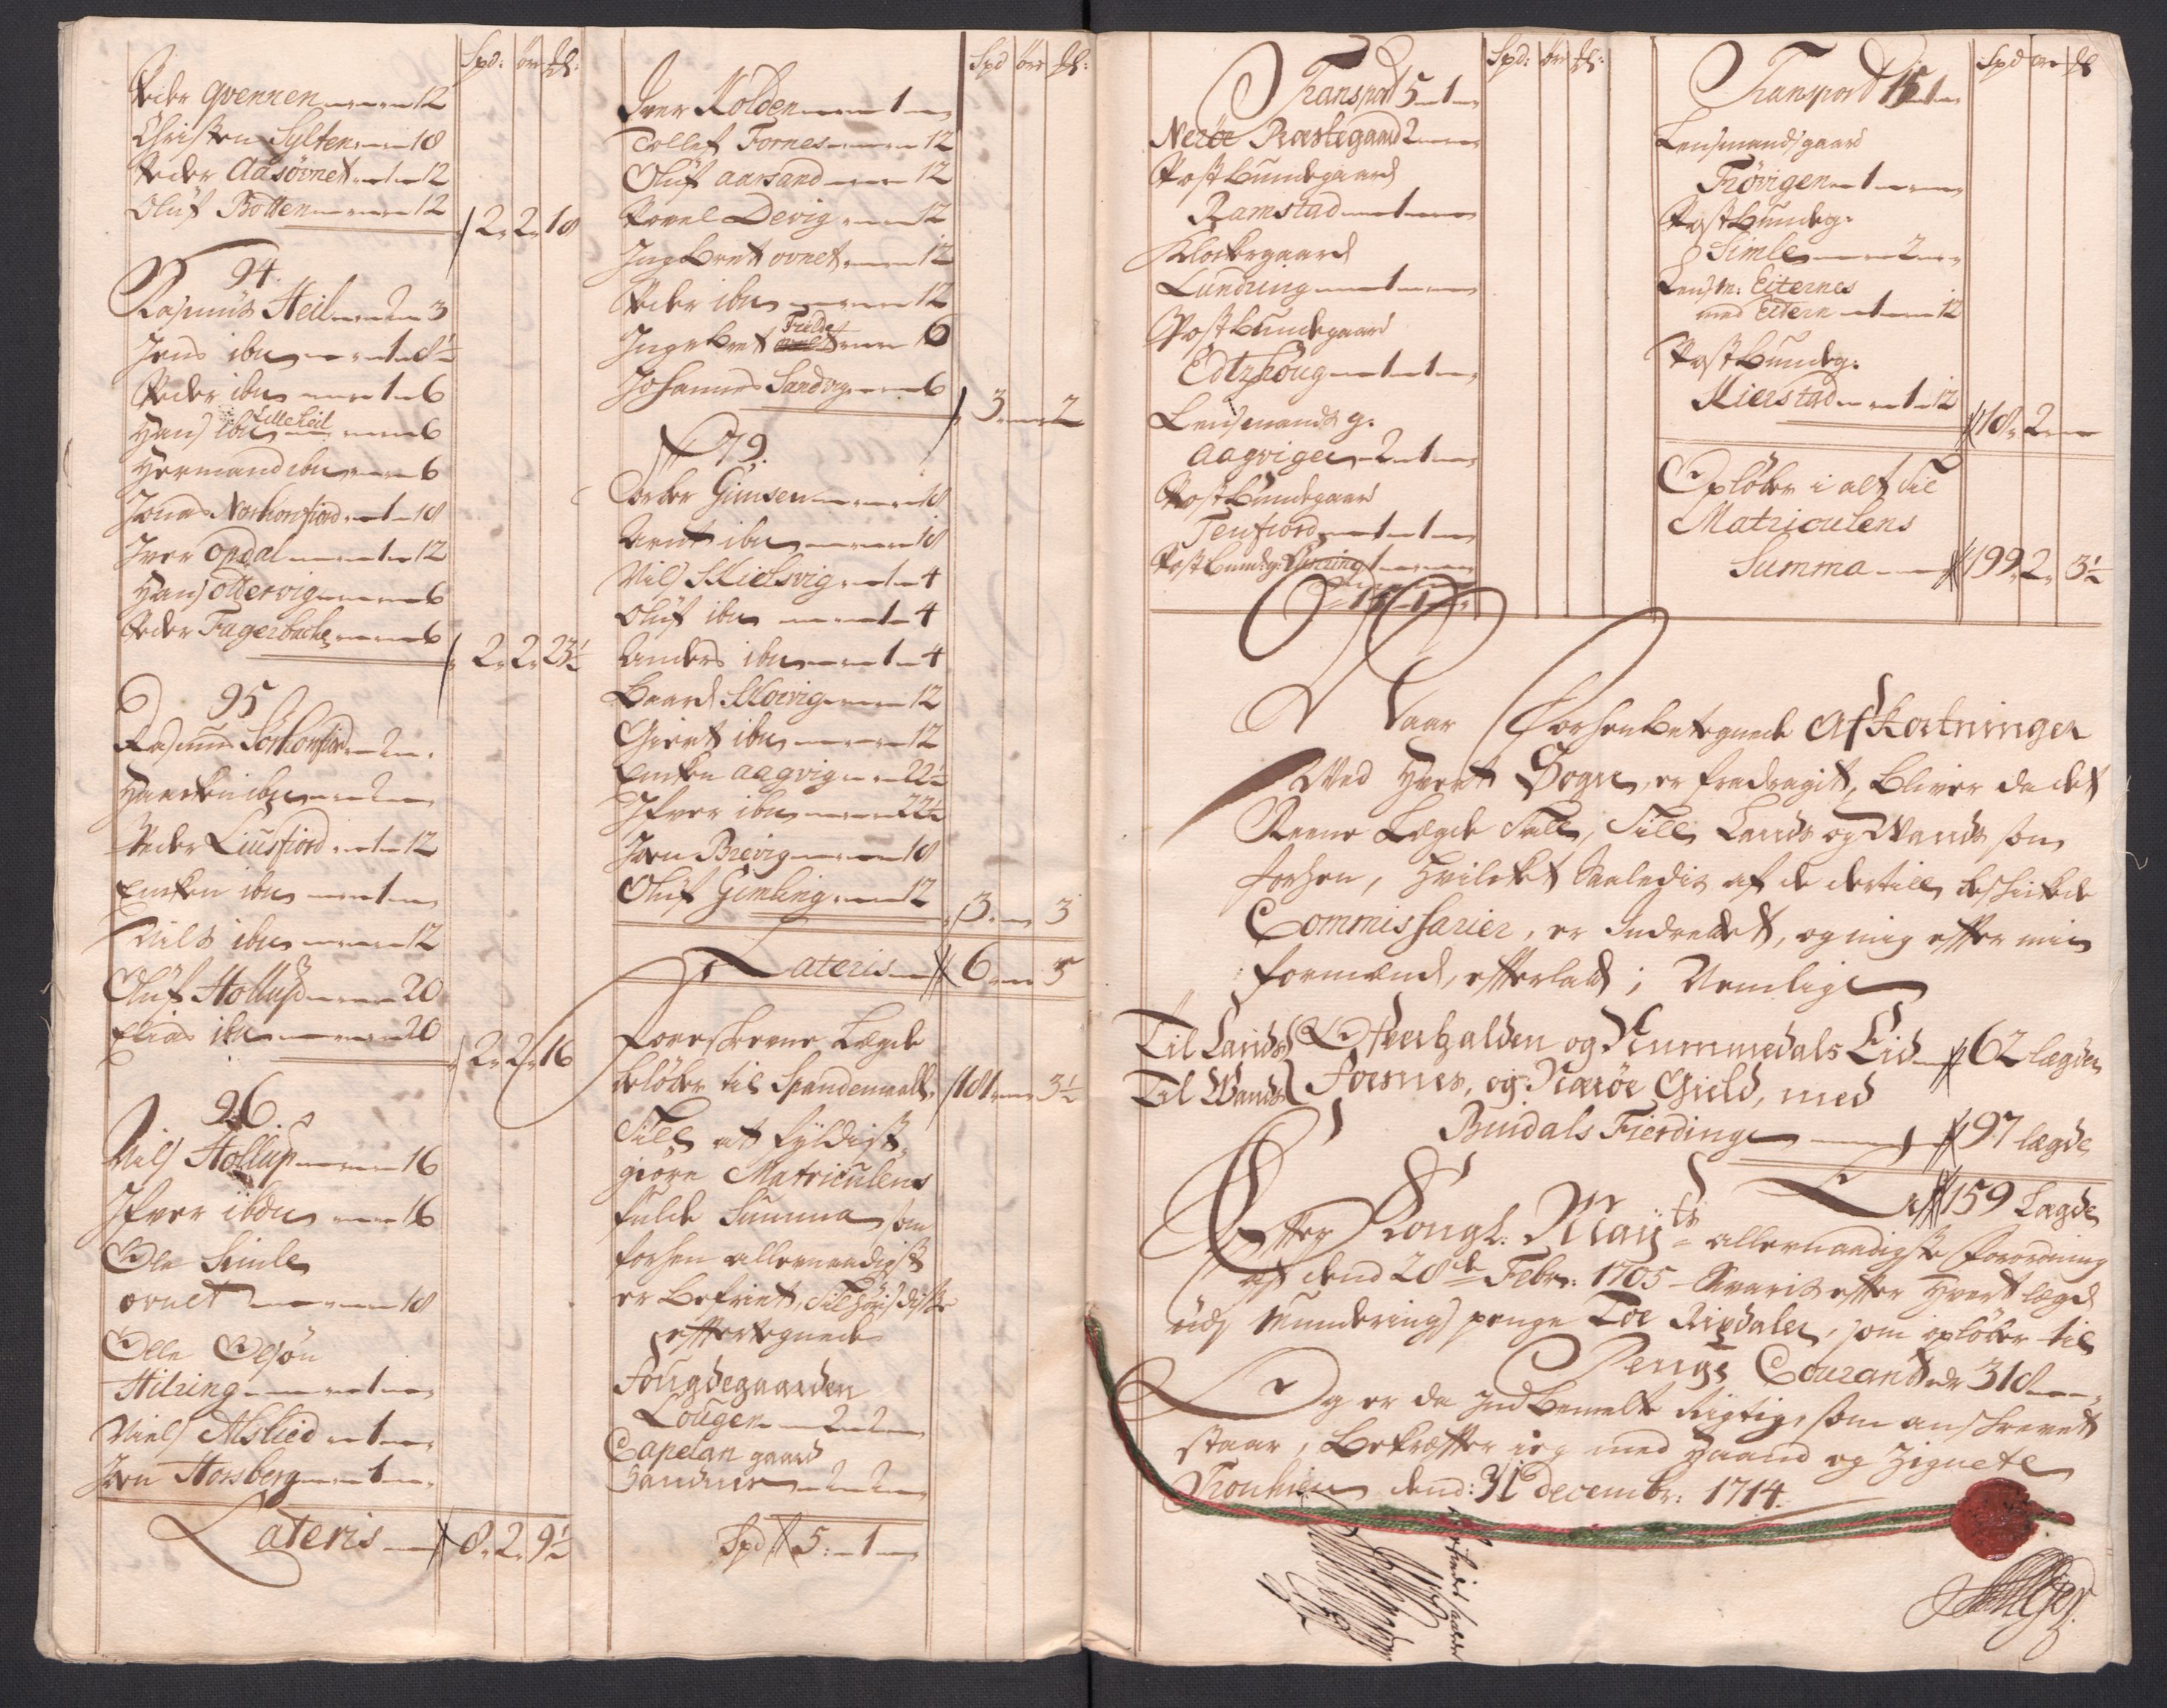 Spd: ör ß:
Peder Qvennen 12
Christen Sylten 18
Peder Aasövnet 1 12
Oluf Botten 12
2 2 18
94
Rasmus Heil 2 3
Jens ibm 1 8½
Peder ibm 1 6
Hans ibm Lille heil 6
Hermand ibm 6
Jonas Norhorsfiord 1 18
Iver Opdal 1 12
Hans Ottervig 6
Peder Fagerbache 6
2 2 23½
95
Rasmus Sörhorsfiord 2
Haachen ibm 2
Peder Liusfiord 1 12
Encken ibm 1
Nils ibm 12
Oluf Hollup 20
Elias ibm 20
2 2 16
96
Nils Hollup 16
Ifver ibdm 16
Ole Simle
ovnet 18
Olle Olsön
Hilring 1
Niels Alslied 1
Jon Horsberg 1
Lateris 8 2 9½
Spd ör ß:
Iver Kolden 1
Tollef Fornes 12
Oluf Aarsand 12
Povel Devig 12
Ingebret ovnet 12
Peder ibm 12
Ingebret Frelde 6
Johannes Sandvig 6
3 2
79.
Peder Gimsen 18
Arnt ibm 18
Nils Kielsvig 1 4
Oluf ibm 1 4
Anders ibm 1 4
Baard Moevig 12
Giert ibm 12
Encken Aagvig 22½
Ifver ibm 22½
Jon Brevig 18
Oluf Gimling 12
3 3
Lateris 6 5
Foreskrevne Lægde
belöber til Spandemaall 181 3½
Till at fyldist
giöre Matriculens
fulde Summa som
forhen allernaadigst
er befriet, Tilföris disse
effterregnede
Fougdegaarden
Lougen 2 2
Capelan gaard
Sandnes 2 2
Spd 5 1
Spd: ör ß:
Transport 5 1
Neröe Præstegaard 2
Postbundegaard
Ramstad 1
Klockergaard
Lundring 1
Postbundegaard
Edtzhoug 1 1
Lensmands g:
Aagvigen 2 1
Postbundegaard
Tenfiord 1 1
Postbundg: 1
15 1
Spd ör ß
Transport 15 1
Lensmandsgaard
Frövigen 1
Postbundeg:
Simle 2
Lensm: Eiternes
med Eitern 1 12
Postbundeg:
Kierstad 1 12
18 2
Oplöber i alt Til
Matriculens
Summa 199 2 3½
Naar forhenbetegnede Afkortninger
Ved hvert Sogn, er fradragit, bliver da det
Reene Lægde Tall, Till Lands og Wands som
forhen, hvilcket saaledis af de dertill beskickede
Commissarier, er Indrettet, og mig effter min
formænd, effterlatt; Nemlig
Til Lands Ofverhalden og Nummedals Eid 62 lægder
Til Wands Foesnes, og Nærøe Gield, med
Bindals Fierding 97 lægde
Er 159 Lægde
Effter Kongl: Mayts allernaadigste forordning
af dend 28de Febr: 1705 Svaris effter hvert lægd
udj Munderings penge Toe Rixdaler, som oplöber til
Penge Courant rdr 318
Og er da Indbemelte Rigtig, som anskrevet
staar, bekræfter ieg med haand og Zignete
Tronhiem dend: 31 Decembr: 1714.